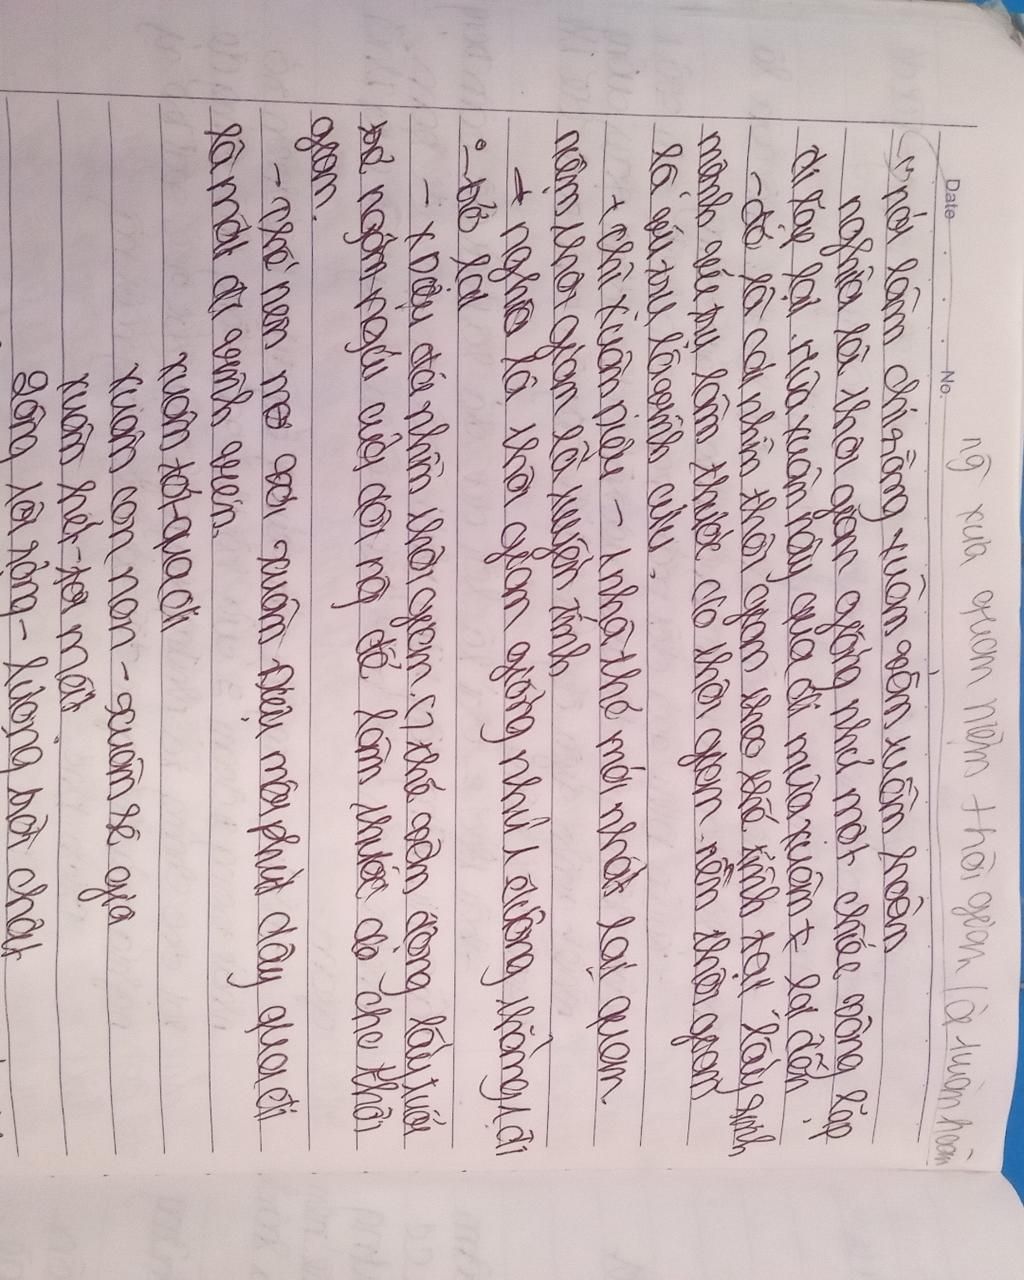 ng xưa quan niệm thời gian là tuần hoàn
Date No.
nói lắm chi rằng xuân vẫn tuần hoàn
nghĩa là thời gian giống như một chiếc vòng lặp
đi lặp lại. Mùa xuân này qua đi mùa xuân # lại đến.
- đó là cái nhìn thời gian theo thế tĩnh tại lấy sinh
mệnh vũ trụ làm thước đo thời gian. nên thời gian
là vũ trụ là vĩnh cửu.
+ chỉ xuân Diệu - 1 nhà thơ mới nhất lại quan
niệm thời gian là tuyến tính
+ nghĩa là thời gian giống như 1 đường thẳng 1 đi
o trở lại
- x Diệu đã nhìn thời gian ↳ thế vận động lấy tuổi
trẻ ngắn ngủi của đời ng để làm thước đo cho thời
gian.
- thế nên nó với xuân Diệu mỗi phút dây qua đi
là mất đi vĩnh viễn.
xuân tới - qua đi
xuân còn non - xuân sẽ già
xuân hết - tôi mất
Lòng tôi rộng - lượng trời chật